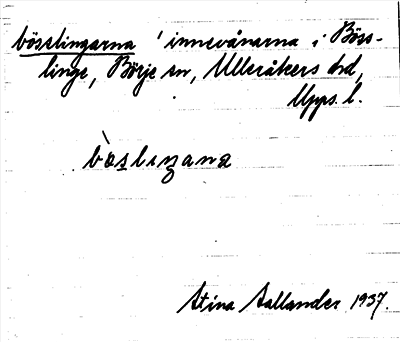 bösslingarna 'innevånarna i Böss-
linge, Börje sn, Ulleråkers hd,
Upps. l.
bòslıŋana
Stina Sallander 1937.